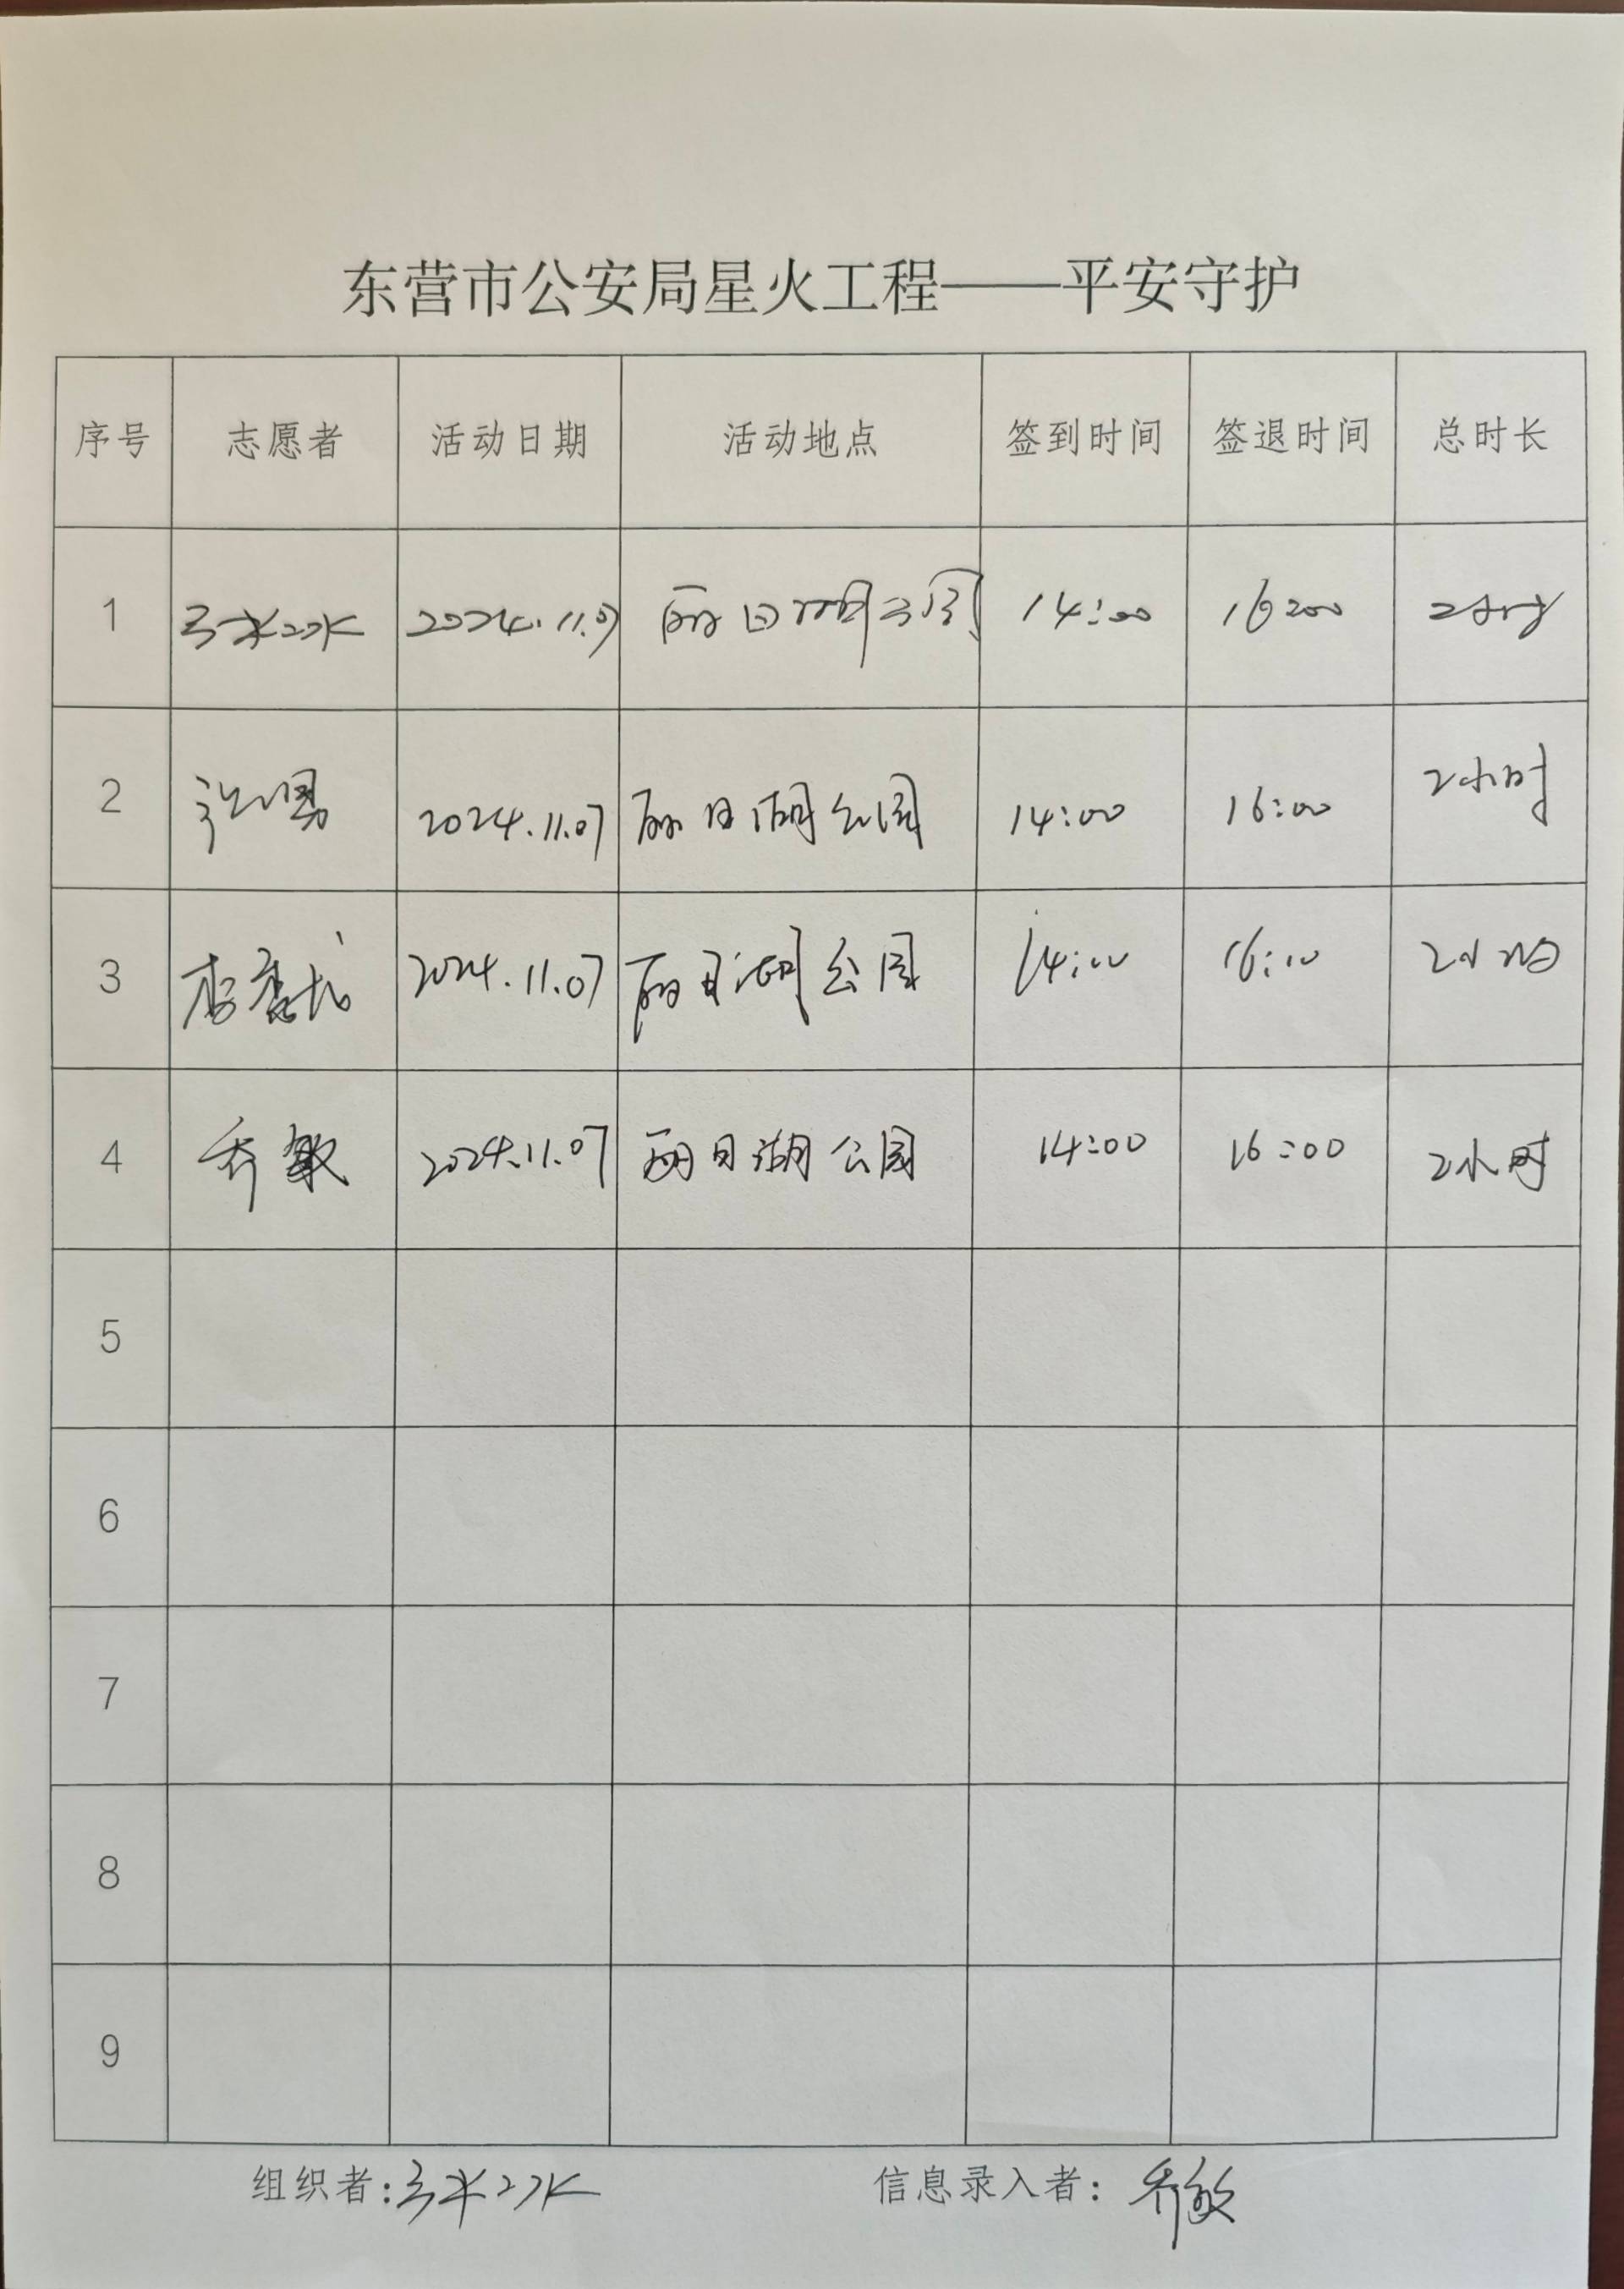 东营市公安局星火工程——平安守护
序号 志愿者 活动日期 活动地点 签到时间 签退时间 总时长
1 2024.11.07 丽日湖公园 14:00 16:00 2小时
2 2024.11.07 丽日湖公园 14:00 16:00 2小时
3 2024.11.07 丽日湖公园 14:00 16:00 2小时
4 乔敏 2024.11.07 丽日湖公园 14:00 16:00 2小时
5
6
7
8
9
组织者: 信息录入者: 乔敏